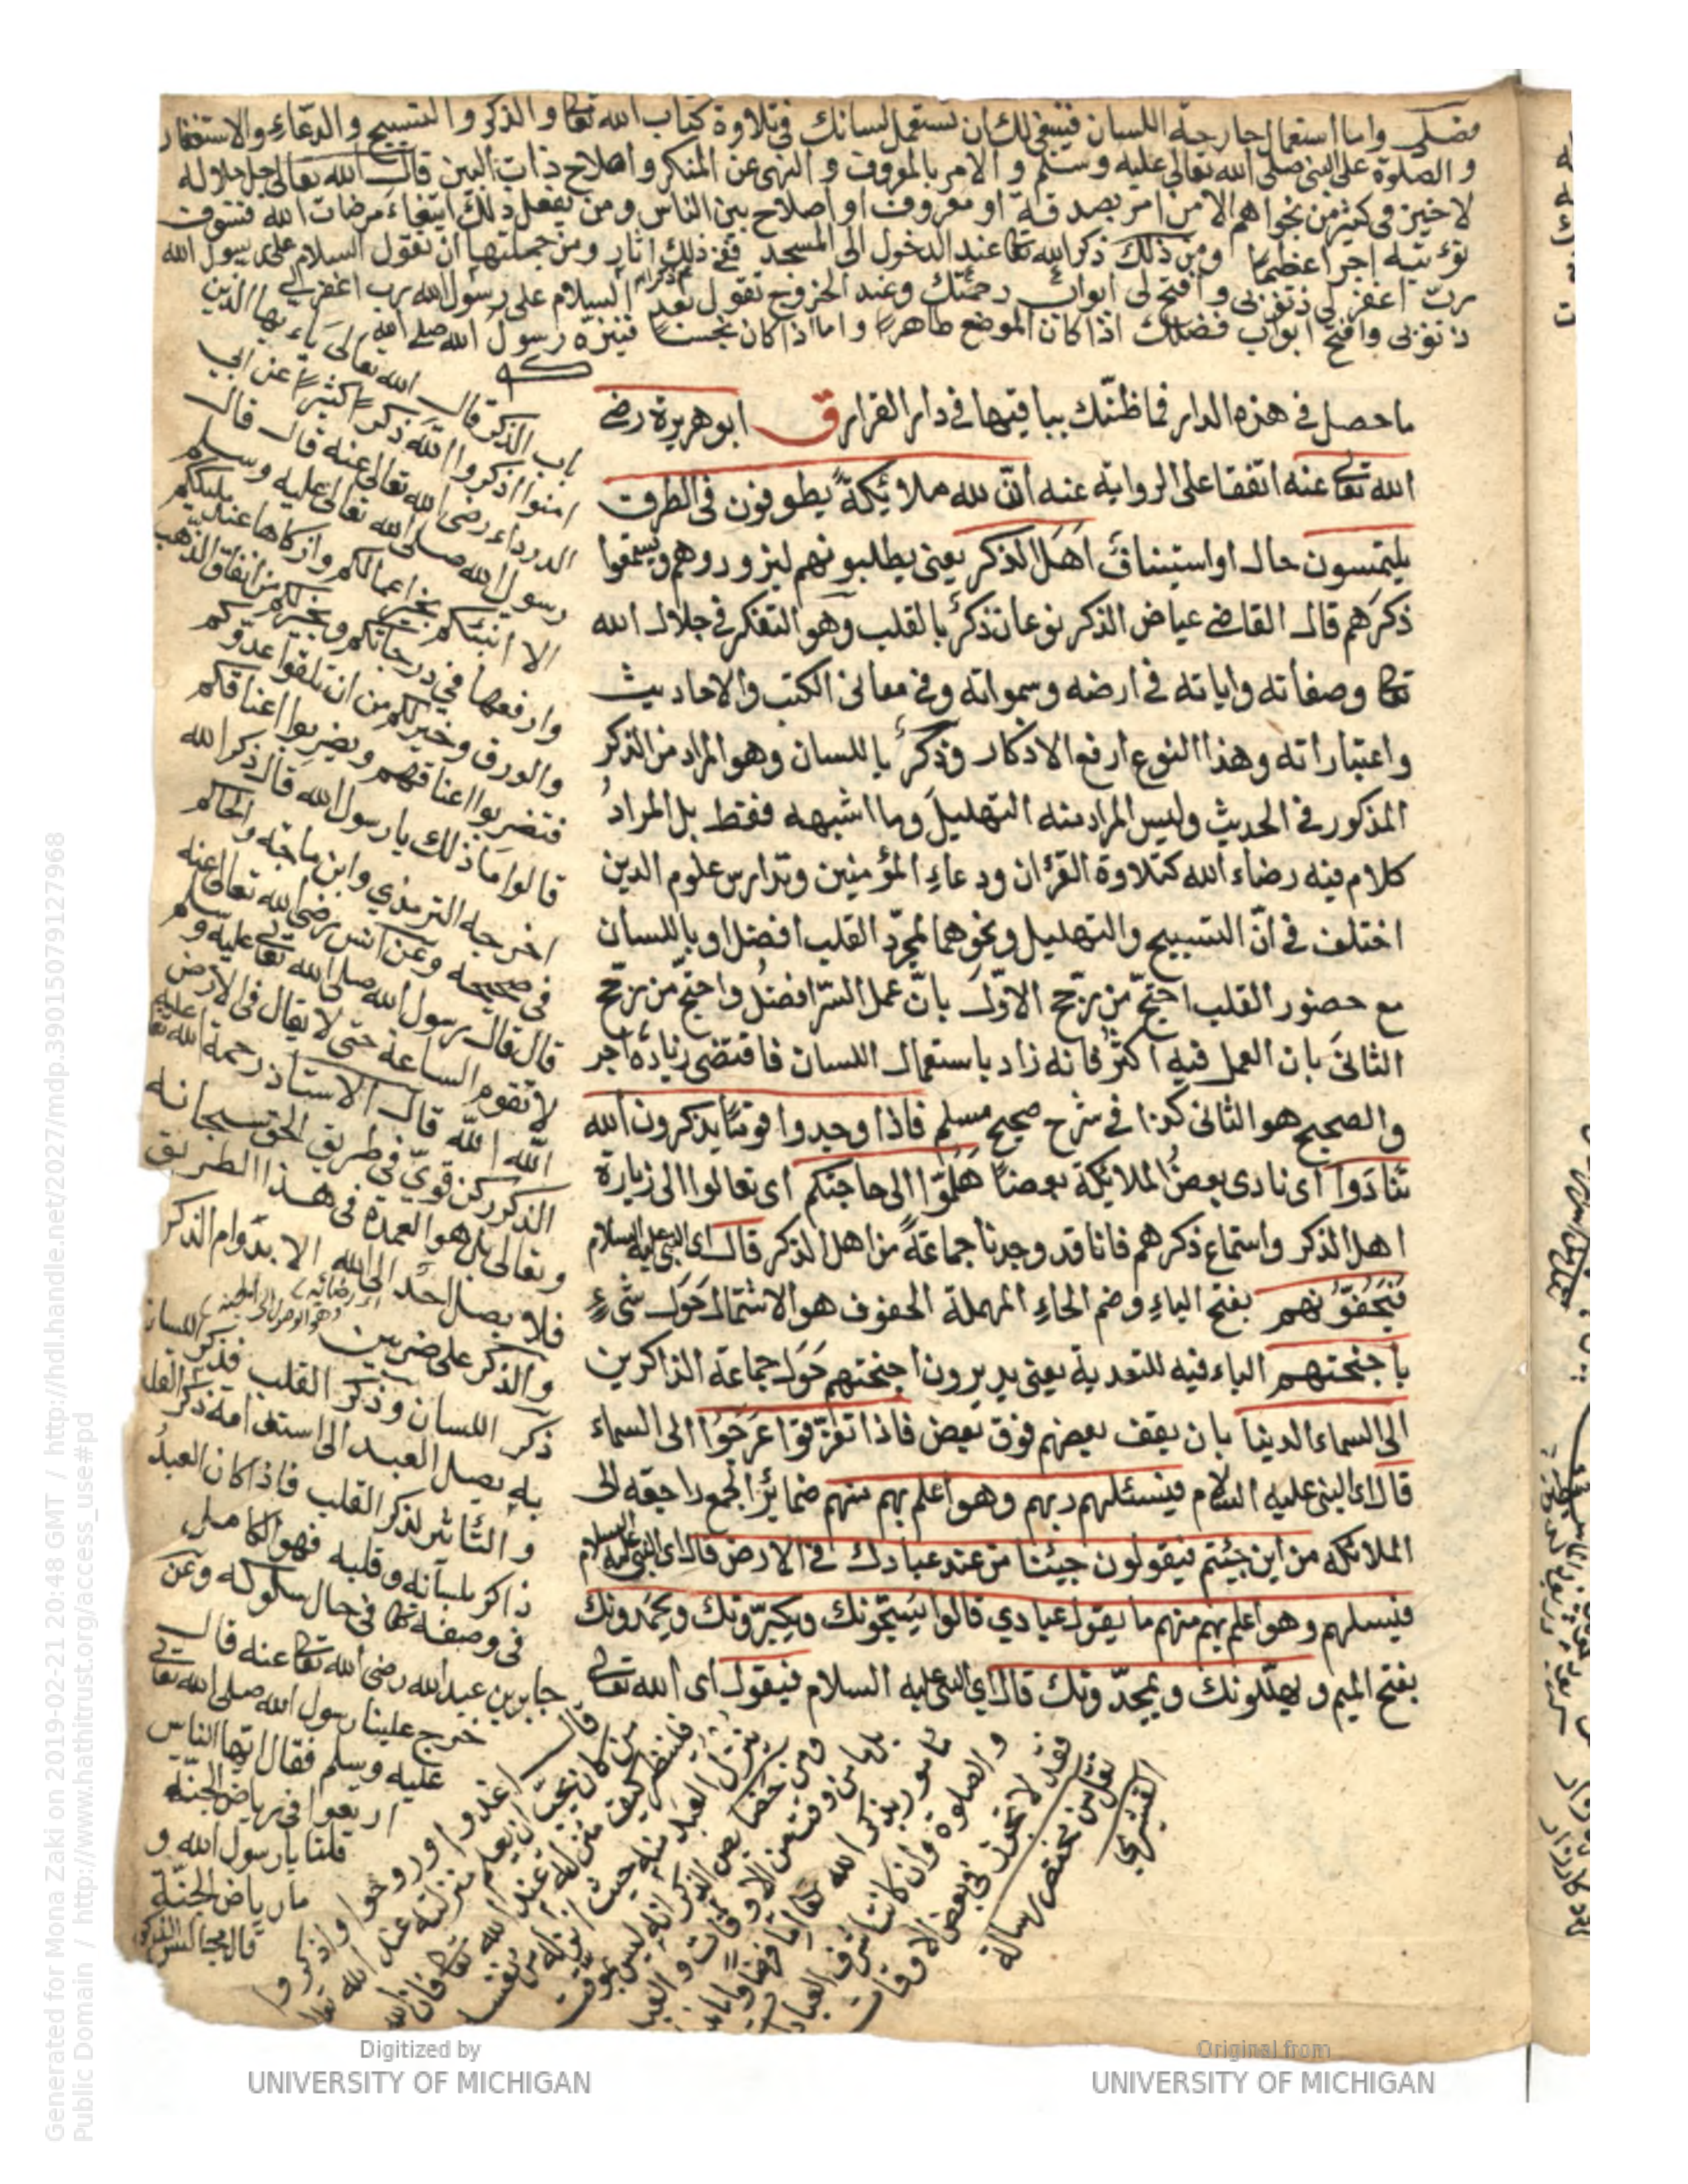 فصل واما استعمال جارحة اللسان فينبغى لك ان تستعمل لسانك فى تلاوة كتاب الله تعا والذكر والتسبيح والدعاء والاستغفار
والصلوة على النبى صلى الله تعالى عليه وسلم والامر بالمعروف والنهى عن المنكر واصلاح ذات البين قال الله تعالى جل جلاله
لا خير فى كثير من نجواهم الا من امر بصدقة او معروف او اصلاح بين الناس ومن يفعل ذلك ابتغاء مرضات الله فسوف
نؤتيه اجرا عظيما ومن ذلك ذكر الله تعا عند الدخول الى المسجد ففى ذلك اثار ومن جملتها ان تقول السلام على رسول الله
رب اغفر لى ذنوبى وافتح لى ابواب رحمتك وعند الخروج تقول بعد السلام على رسول الله رب اغفر لى
ذنوبى وافتح ابواب فضلك اذا كان الموضع طاهرا واما اذا كان نجسا فينزه رسول الله صلى الله
ما حصل فى هذه الدار فما ظنّك بباقيتها فى دار القرار ق ابو هريرة رضى
الله تعالى عنه اتفقا على الرواية عنه انّ لله ملائكةً يطوفون فى الطرق
يلتمسون حال او استيناف اهل الذكر يعنى يطلبونهم ليزوروهم ويسمعوا
ذكرهم قال القاضى عياض الذكر نوعان ذكر بالقلب وهو التفكر فى جلال الله
تعا وصفاته واياته فى ارضه وسمواته وفى معانى الكتب والاحاديث
واعتباراته وهذا النوع ارفع الاذكار وذكر باللسان وهو المراد من الذكر
المذكور فى الحديث وليس المراد منه التهليل وما اشبهه فقط بل المراد
كلام فيه رضاء الله كتلاوة القرأن ودعاء المؤمنين وتدارس علوم الدين
اختلف فى انّ التسبيح والتهليل ونحوهما لمجرّد القلب افضل او باللسان
مع حضور القلب احتجّ من رجّح الاوّل بانّ عمل السّر افضل واحتجّ من رجّح
الثانى بان العمل فيه اكثر فانه زاد باستعمال اللسان فاقتضى زيادة اجر
والصحيح هو الثانى كذا فى شرح صحيح مسلم فاذا وجدوا قوما يذكرون الله
تنادوا اى نادى بعض الملائكة بعضا هلمّوا الى حاجتكم اى تعالوا الى زيارة
اهل الذكر واستماع ذكرهم فانا قد وجدنا جماعة من اهل الذكر قال اى النبى عليه السلام
فيحفّونهم بفتح الياء وضم الحاء المهملة الحفوف هو الاشتمال حول شىء
باجنحتهم الباء فيه للتعدية يعنى يديرون اجنحتهم حول جماعة الذاكرين
الى السماء الدنيا بان يقف بعضهم فوق بعض فاذا تفرّقوا عرجوا الى السماء
قال اى النبى عليه السلام فيسئلهم ربهم وهو اعلم بهم منهم ضمائر الجمع راجعة الى
الملائكه من اين جئتم فيقولون جئنا من عند عبادك فى الارض قال اى النبى عليه السلام
فيسلهم وهو اعلم بهم منهم ما يقول عبادي قالوا يسبّحونك ويكبّرونك ويحمدونك
بفتح الميم و يهلّلونك و يمجدّونك قال اي النبى عليه السلام فيقول اى الله تعالى
باب الذكر قال الله تعالى ياء يها الذين
امنوا اذكروا الله ذكرا كثيرا عن ابي
الدرداء رضى الله تعالى عنه قال قال
رسول الله صلى الله تعالى عليه وسلم
الا انبئكم بخير اعمالكم وازكاها عند مليككم
وارفعها فى درجاتكم وخير لكم من انفاق الذهب
والورق وخير لكم من ان تلقوا عدوكم
فتضربوا اعناقهم ويضربوا اعناقكم
قالوا ما ذلك يا رسول الله قال ذكر الله
اخرجه الترمذي وابن ماجة والحاكم
فى صحيحه وعن انس رضى الله تعالى عنه
قال قال رسول الله صلى الله تعالى عليه وسلم
لا تقوم الساعة حتى لا يقال فى الارض
الله الله قال الاستاذ رحمة الله تعا عليه
الذكر ركن قويّ فى طريق الحق سبحانه
وتعالى بل هو العمدة فى هذا الطريق
فلا يصل احد الى الله الا بدوام الذكر
والذكر على ضربين
ذكر اللسان وذكر القلب فذكر اللسان
به يصل العبد الى استدامة ذكر القلب
والتأثير لذكر القلب فاذا كان العبد
ذاكر بلسانه وقلبه فهو الكامل
فى وصفه فى حال سلوكه وعن
جابر بن عبد الله رضى الله تعا عنه قال
خرج علينا رسول الله صلى الله تعالى
عليه وسلم فقال ايها الناس
ارتعوا فى رياض الجنة
قلنا يا رسول الله و
ما رياض الجنة
قال مجالس الذكر
قال اغدوا وروحوا واذكروا
من كان يحب ان يعلم منزلته عند الله تعالى
فلينظر كيف منزلة الله تعا عنده فان الله
ينزل العبد منه حيث انزله من نفسه
ومن خصايص الذكر انه ليس بموقت
بل ما من وقت من الاوقات و العبد
مأمور بذكر الله تعا اما فرضا واما ندبا
والصلوة وان كانت اشرف العبادات
فقد لا تجوز فى بعض الاوقات
نقل من مختصر رسالة
القشيري
Digitized by
UNIVERSITY OF MICHIGAN
Original from
UNIVERSITY OF MICHIGAN
Generated for Mona Zaki on 2019-02-21 20:48 GMT / http://hdl.handle.net/2027/mdp.39015079127968
Public Domain / http://www.hathitrust.org/access_use#pd